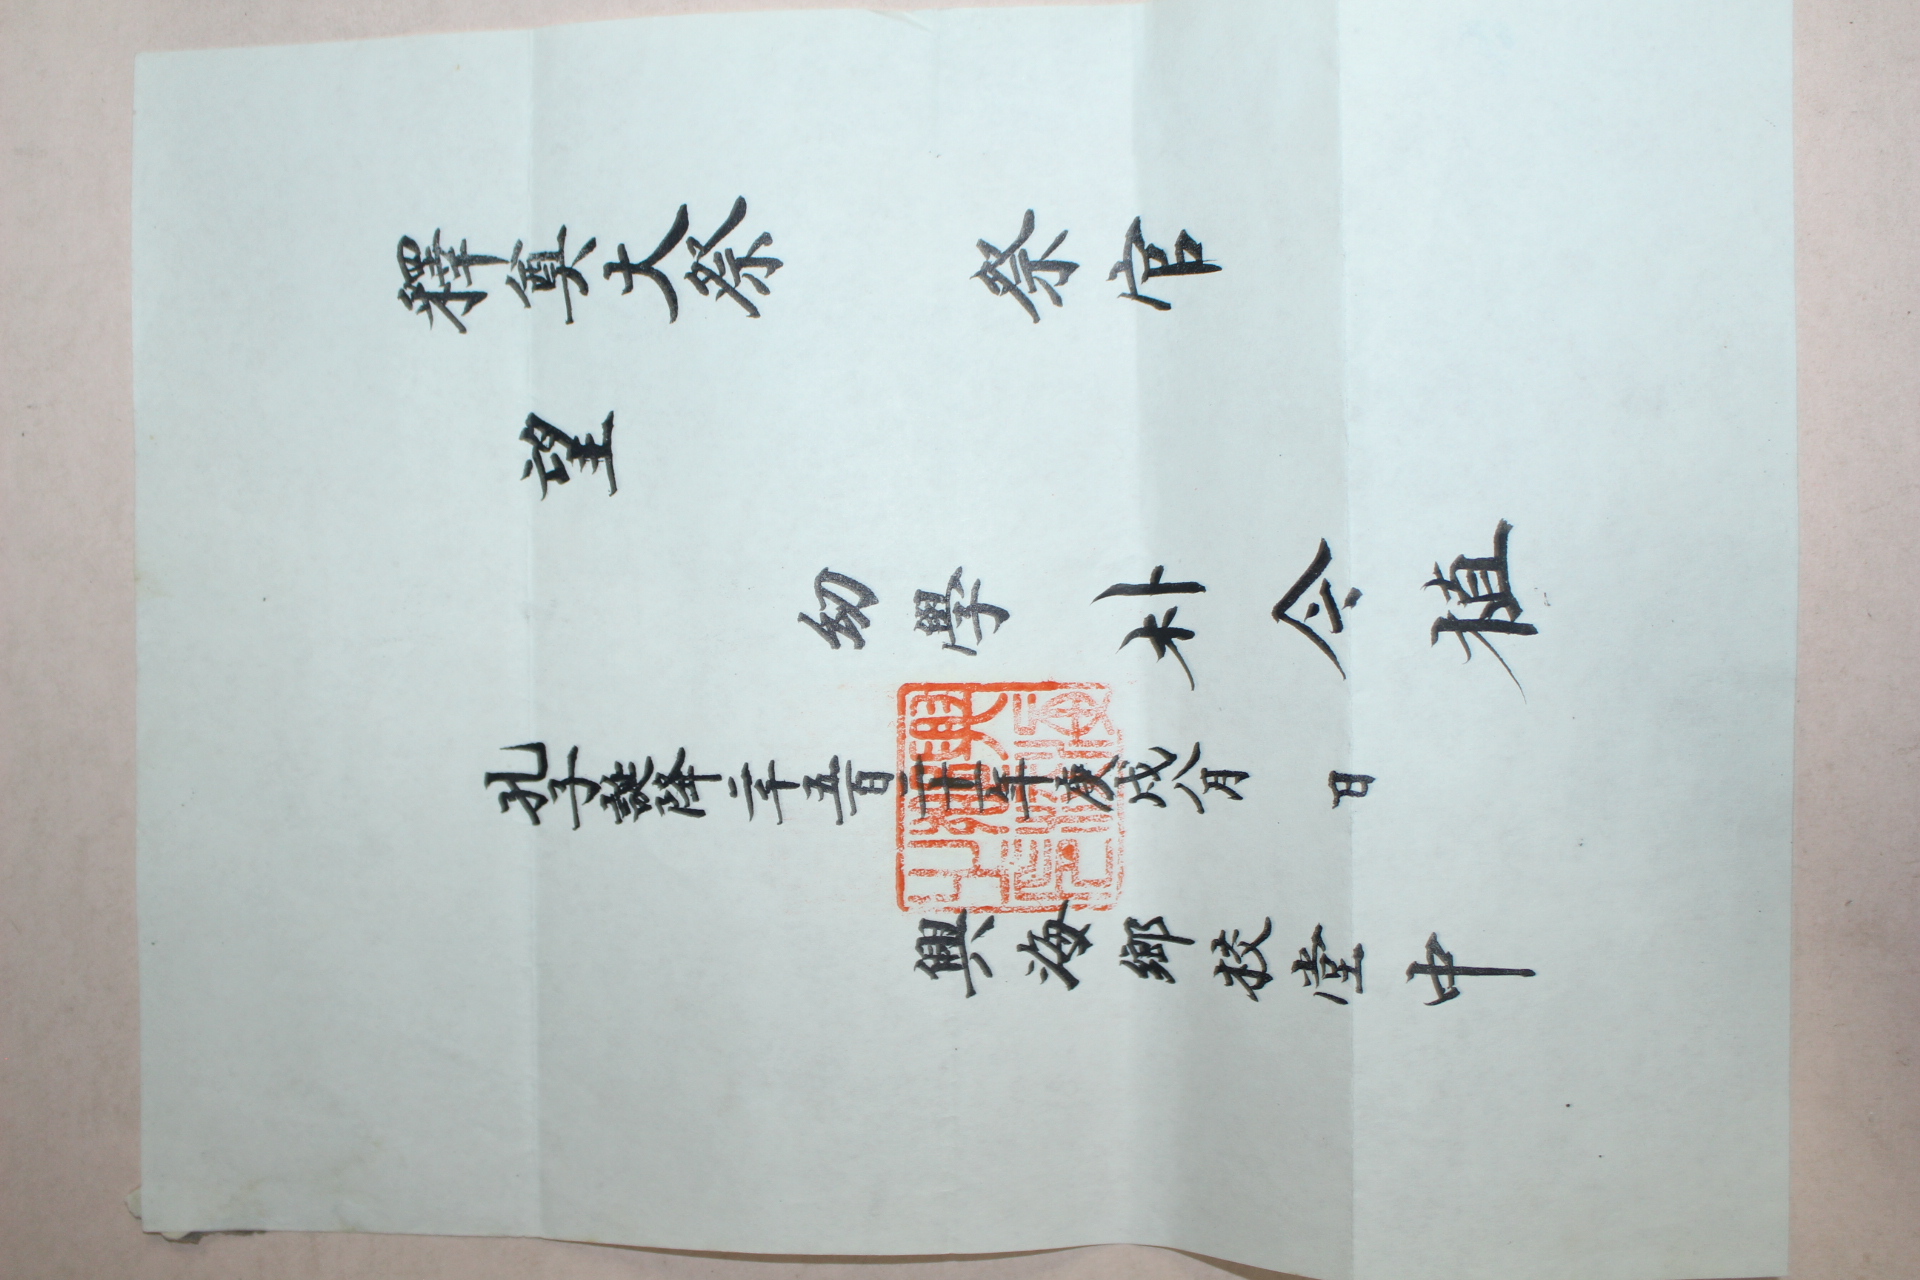 釋奠大祭 祭官
望
幼學 朴令植
孔子誕降二千五百二十一年庚戌八月 日
興海鄕校堂中